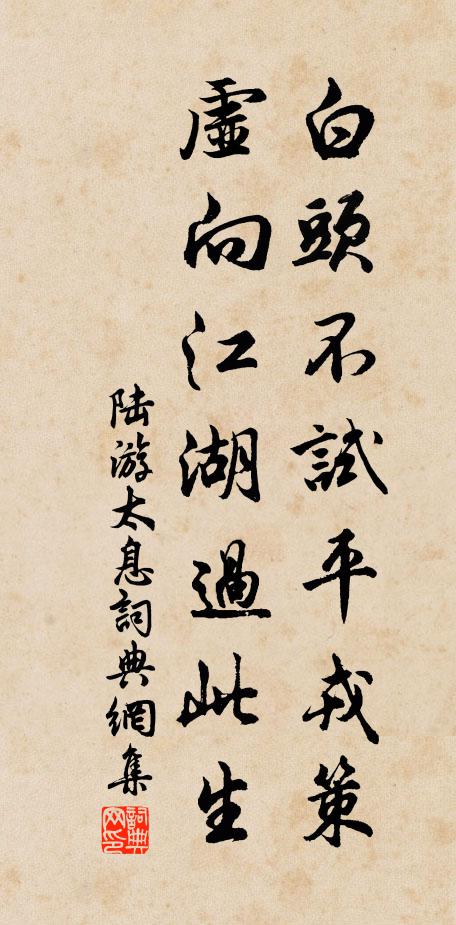 白頭不試平戎策
虛向江湖過此生
陆游太息詞典網集
詞典網印